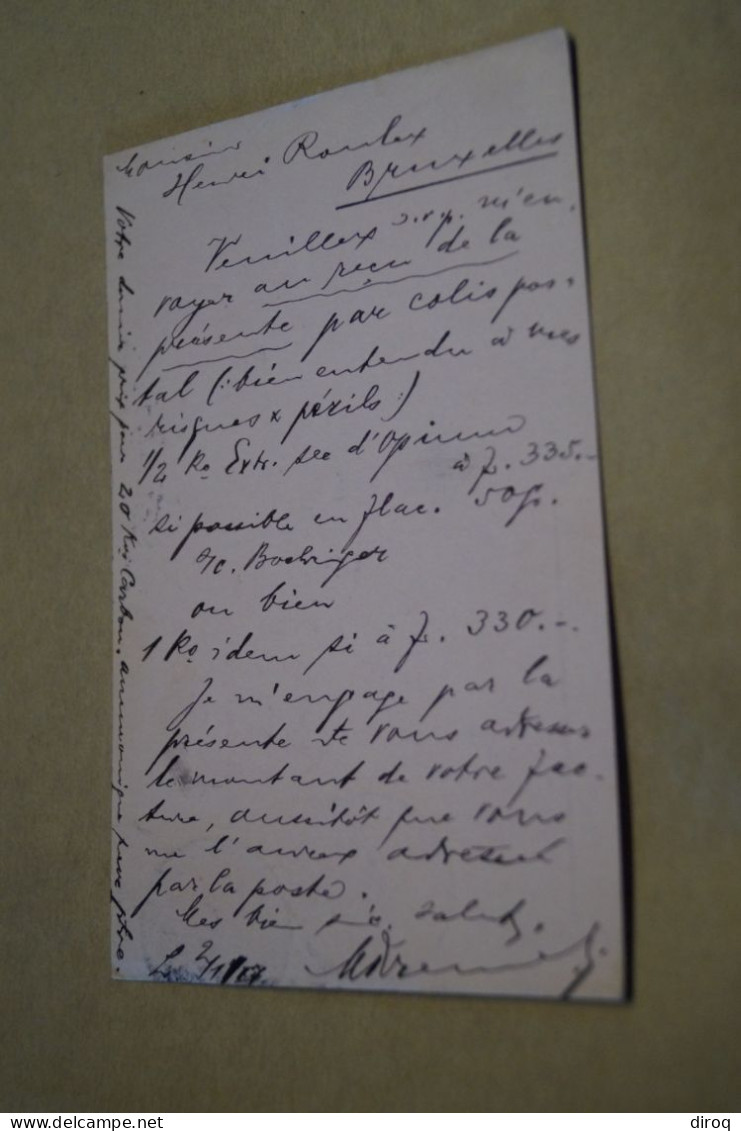 Monsieur
Henri Roulex
Bruxelles
Veuillex s.v.p. m'en.
voyer au reçu de la
présente par colis pos-
tal (:bien entendu à mes
risques x périls:)
1/2 Ko Extr. sec d'Opium
à f. 335.-
si possible en flac. 50g.
Boehringer
ou bien
1 Ko idem si à f. 330.-.
Je m'engage par la
présente de vous adresser
le montant de votre fac-
ture, aussitôt que vous
me l'aurex adressée
par la poste.
Mes bien sinc. salut.
Votre dernier prix pour 20 Kg Carbon. ammoniaque
diroq